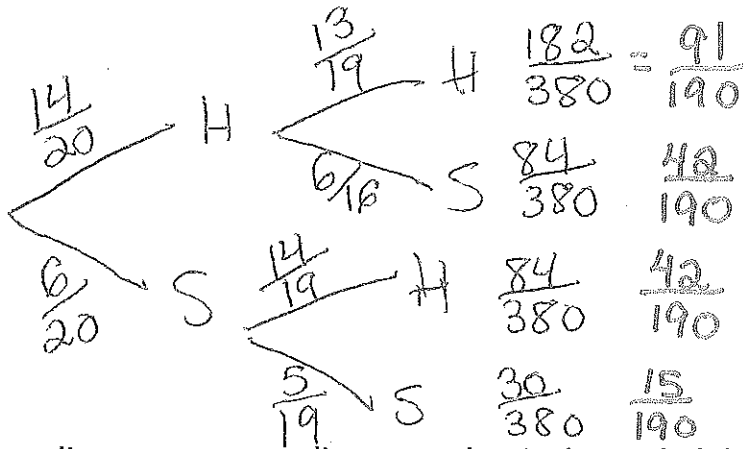 14/20 H 13/19 H 182/380 = 91/190
6/16 S 84/380 42/190
6/20 S 14/19 H 84/380 42/190
5/19 S 30/380 15/190